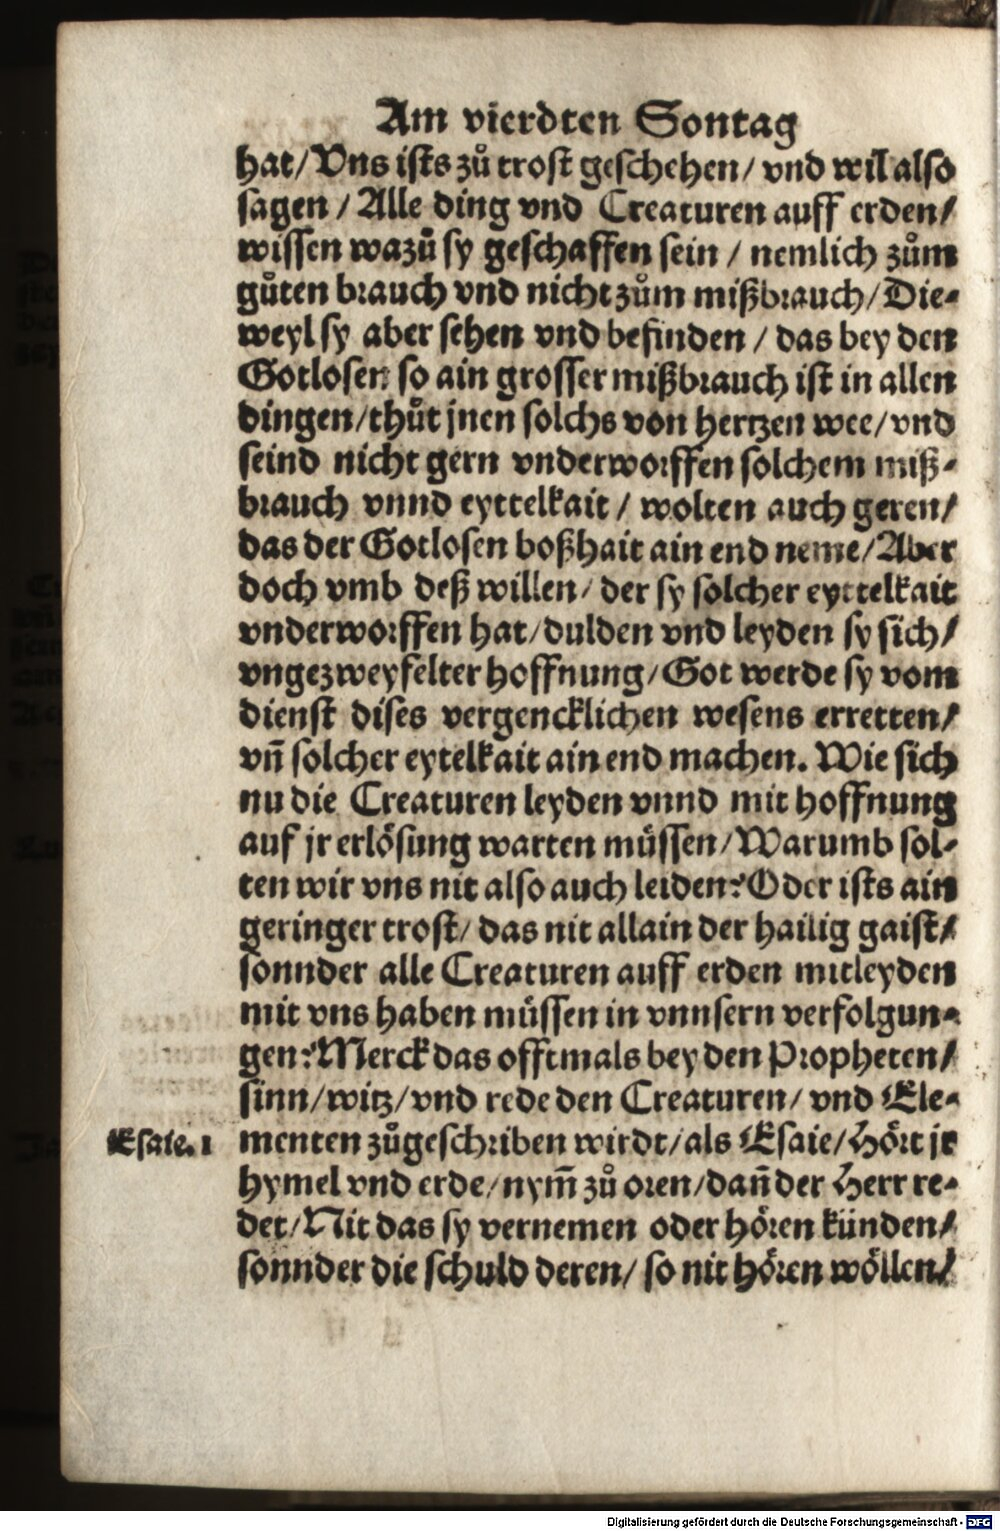 Am vierdten Sontag
hat/ Vns ists zů trost geschehen/ vnd wil also
sagen / Alle ding vnd Creaturen auff erden/
wissen wazů sy geschaffen sein / nemlich zům
gůten brauch vnd nicht zům mißbrauch/ Die-
weyl sy aber sehen vnd befinden / das bey den
Gotlosen so ain grosser mißbrauch ist in allen
dingen/ thůt jnen solchs von hertzen wee/ vnd
seind nicht gern vnderworffen solchem miß-
brauch vnnd eyttelkait / wolten auch geren/
das der Gotlosen boßhait ain end neme/ Aber
doch vmb deß willen/ der sy solcher eyttelkait
vnderworffen hat/ dulden vnd leyden sy sich/
vngezweyfelter hoffnung/ Got werde sy vom
dienst dises vergencklichen wesens erretten/
vñ solcher eytelkait ain end machen. Wie sich
nu die Creaturen leyden vnnd mit hoffnung
auf jr erlösung warten müssen/ Warumb sol-
ten wir vns nit also auch leiden? Oder ists ain
geringer trost/ das nit allain der hailig gaist/
sonnder alle Creaturen auff erden mitleyden
mit vns haben müssen in vnnsern verfolgun-
gen? Merck das offtmals bey den Propheten/
sinn/ witz/ vnd rede den Creaturen/ vnd Ele-
Esaie. 1 menten zůgeschriben wirdt/ als Esaie/ Hört jr
hymel vnd erde/ nym̃ zů oren/ dañ der Herr re-
det/ Nit das sy vernemen oder hören künden/
sonnder die schuld deren/ so nit hören wöllen/
Digitalisierung gefördert durch die Deutsche Forschungsgemeinschaft - DFG